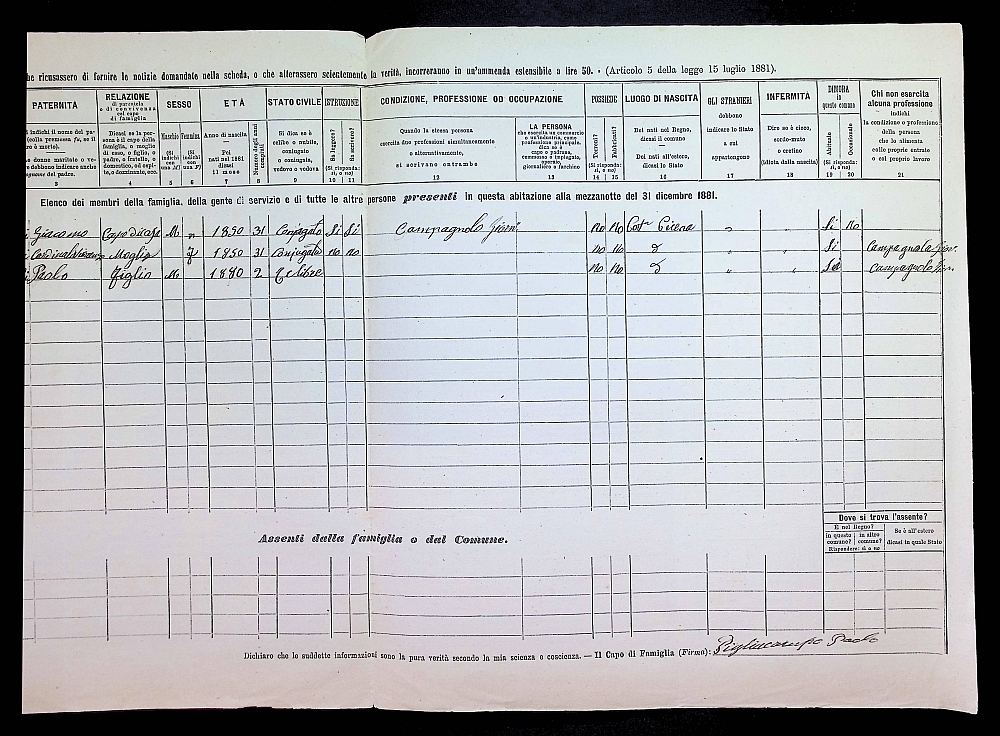 he ricusassero di fornire le notizie domandate nella scheda, o che alterassero scientemente la verità, incorreranno in un'ammenda estensibile a lire 50. - (Articolo 5 della legge 15 luglio 1881).
PATERNITÀ
RELAZIONE
di parentela
o di convivenza
col capo
di famiglia
SESSO
ETÀ
STATO CIVILE
ISTRUZIONE
CONDIZIONE, PROFESSIONE OD OCCUPAZIONE
POSSIEDE
LUOGO DI NASCITA
GLI STRANIERI
dobbono
indicare lo Stato
a cui
appartengono
INFERMITÀ
DIMORA
in
questo comune
Chi non esercita
alcuna professione
indichi
la condizione o professione
della persona
che lo alimenta
colle proprie entrate
o col proprio lavoro
Dicasi se la per-
sona è il capo della
famiglia, o moglie
Maschio
Femmina
(Si indichi con una 1)
Anno di nascita
Pei nati nel 1881 dicasi il mese
Numero degli anni compiuti
Si dica se è
celibe o nubile,
coniugato
o coniugata,
vedovo o vedova
Sa leggere?
Sa scrivere?
(Si risponda: sì, o no)
Quando la stessa persona
esercita due professioni simultaneamente
o alternativamente,
si scrivano entrambe
LA PERSONA
che esercita un commercio
o un'industria, come
professione principale,
dica se è
capo o padrone,
commesso o impiegato,
operaio,
giornaliero o facchino
Terreni?
Fabbricati?
(Si risponda: sì, o no)
Dei nati nel Regno,
dicasi il comune
Dei nati all'estero,
dicasi lo Stato
Dire se è cieco,
sordo-muto
o cretino
(idiota dalla nascita)
Abituale
Occasionale
(Si risponda: sì, o no)
3 4 5 6 7 8 9 10 11 12 13 14 15 16 17 18 19 20 21
Elenco dei membri della famiglia, della gente di servizio e di tutte le altre persone presenti in questa abitazione alla mezzanotte del 31 dicembre 1881.
Giacomo Capo di casa M 1850 31 Coniugato Si Si Campagnolo no no Si no
Moglie f 1850 31 Coniugata no no no no Si Campagnolo
Paolo figlio M 1880 2 Celibe no no Campagnolo
Dove si trova l'assente?
È nel Regno?
in questo comune?
in altro comune?
Rispondere: sì o no
Se è all'estero
dicasi in quale Stato
Assenti dalla famiglia o dal Comune.
Dichiaro che le suddette informazioni sono la pura verità secondo la mia scienza e coscienza. — Il Capo di Famiglia (Firma): Pigliacampo Paolo